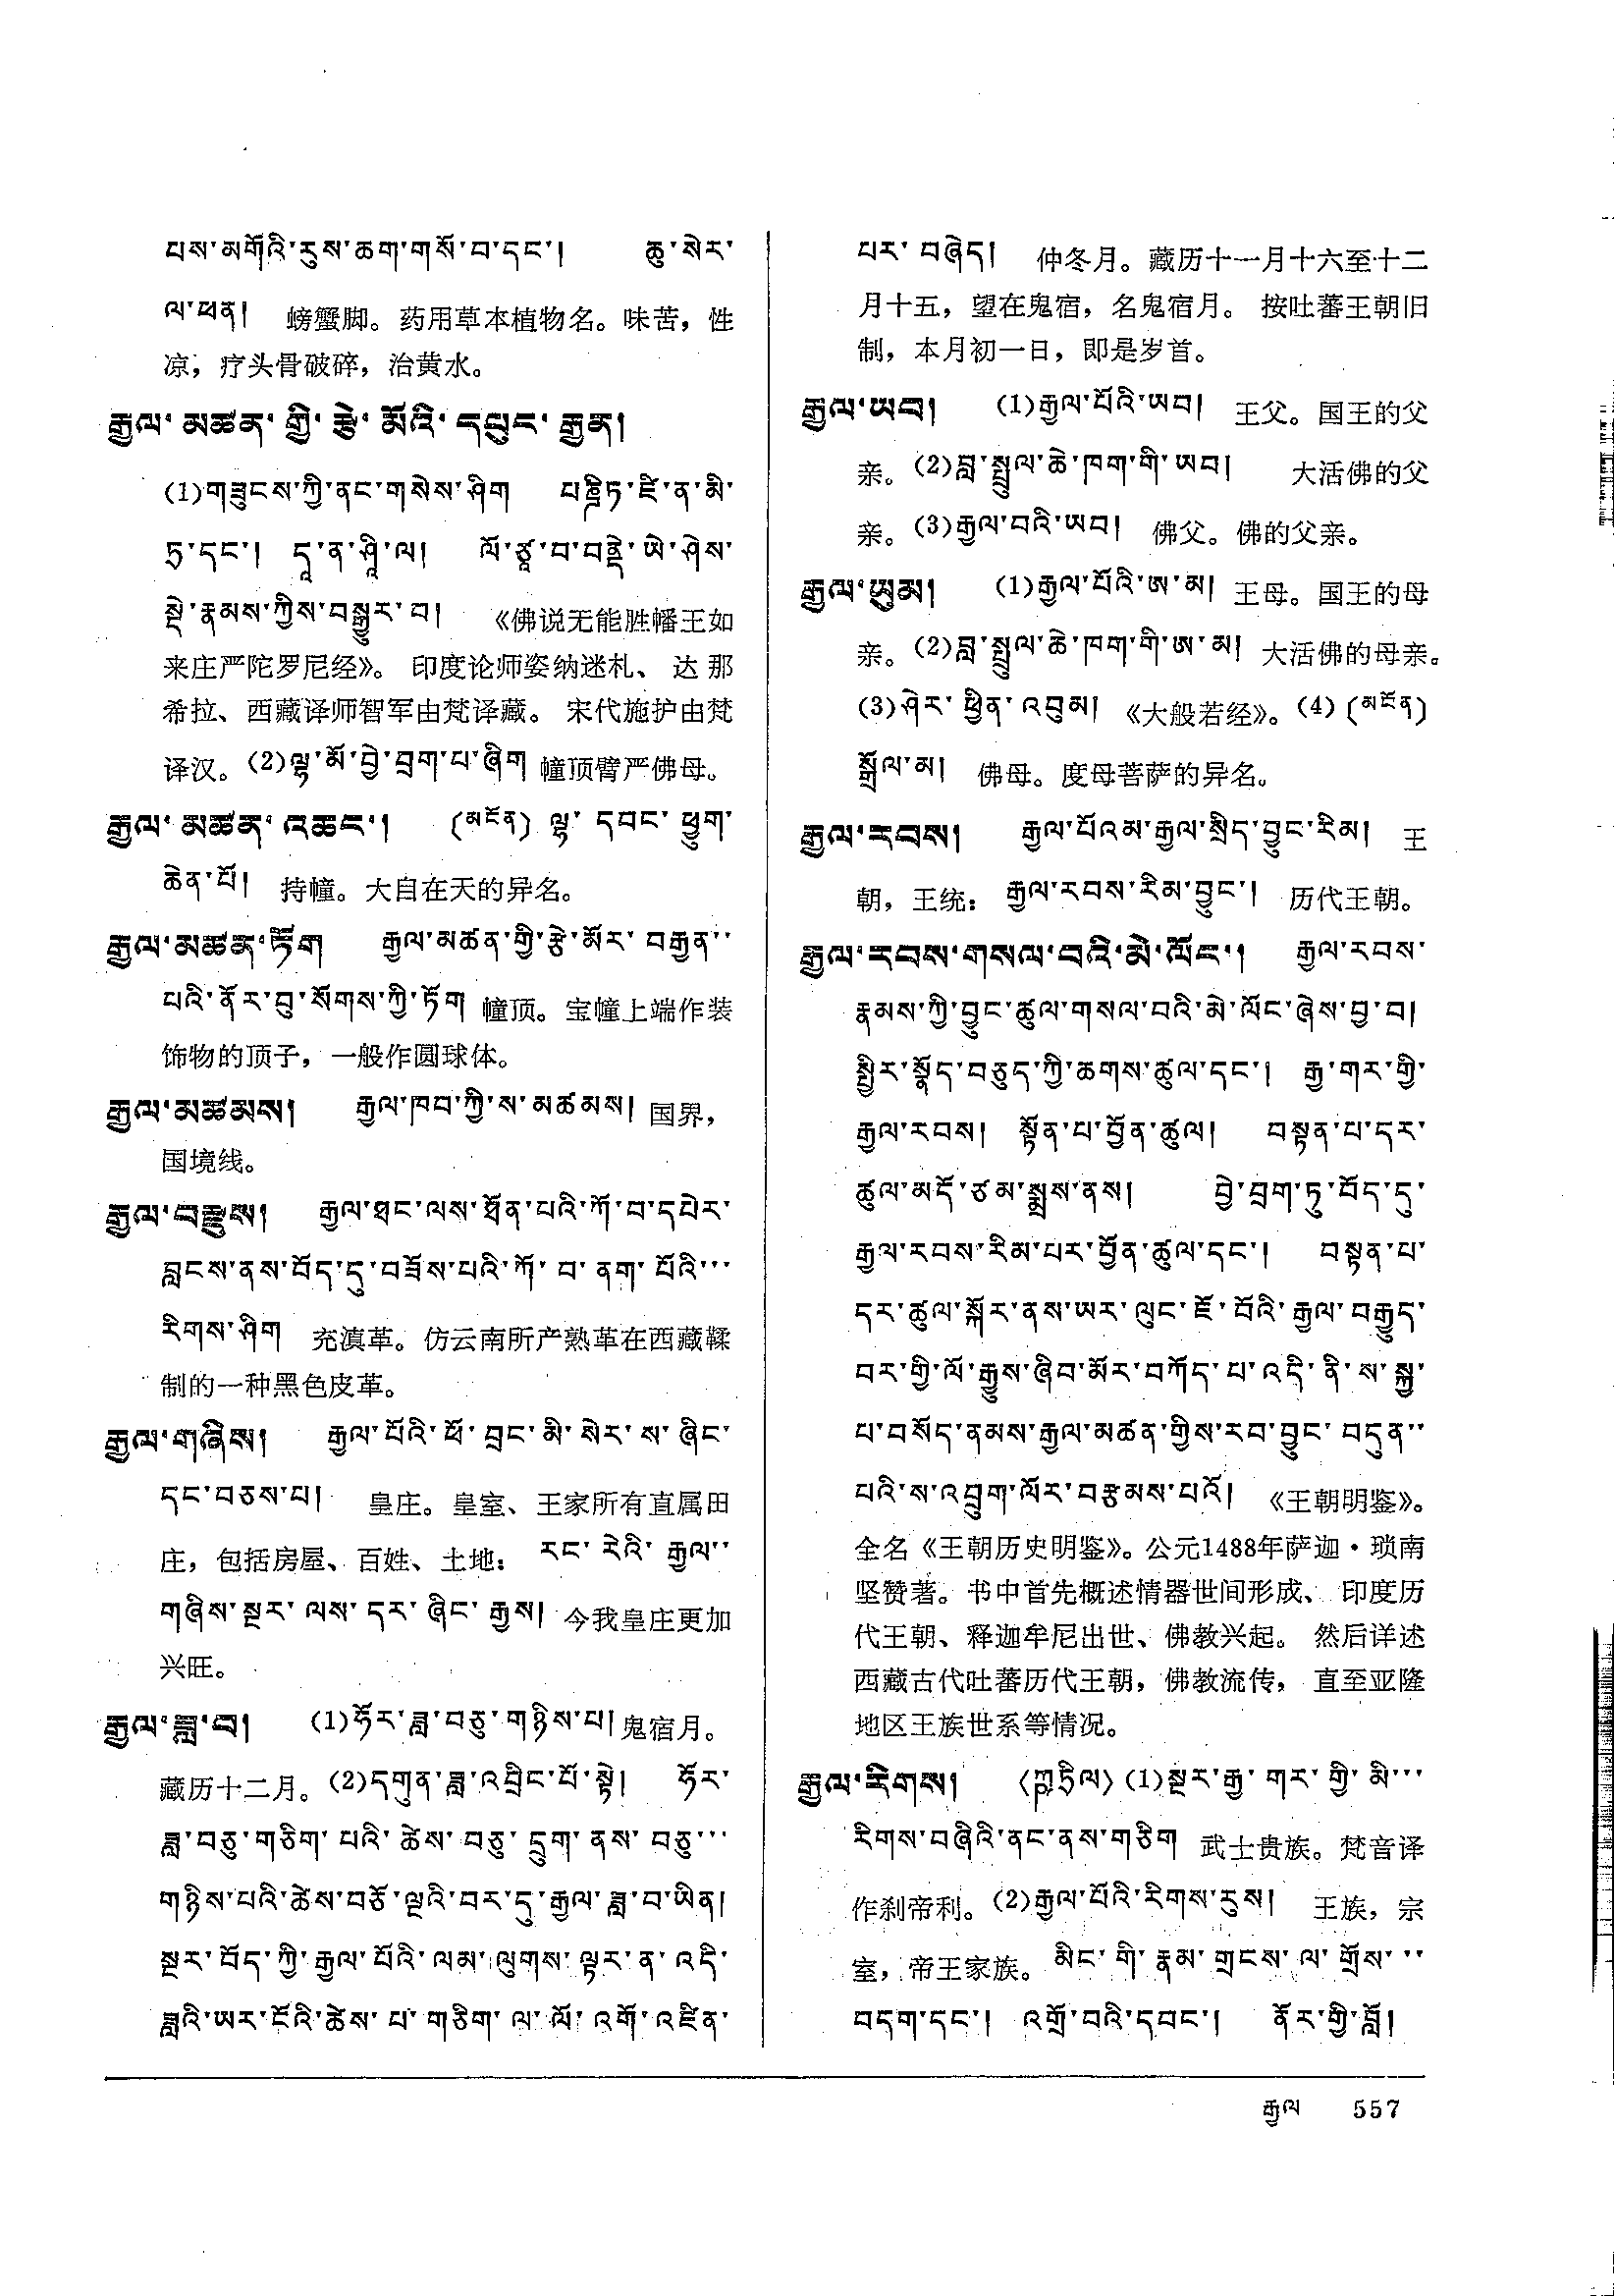 པས་མགོའི་རུས་ཆག་གསོ་བ་དང་། ཆུ་སེར་
ལ་ཕན། 螃蟹脚。药用草本植物名。味苦，性
凉，疗头骨破碎，治黄水。
རྒྱལ་མཚན་གྱི་རྩེ་མོའི་དཔུང་རྒྱན།
(1)གཟུངས་ཀྱི་ནང་གསེས་ཤིག པཎྜིཏ་ཛི་ན་མི་
ཏྲ་དང་། དཱ་ན་ཤཱི་ལ། ལོ་ཙཱ་བ་བནྡེ་ཡེ་ཤེས་
སྡེ་རྣམས་ཀྱིས་བསྒྱུར་བ། 《佛说无能胜幡王如
来庄严陀罗尼经》。印度论师姿纳迷札、达那
希拉、西藏译师智军由梵译藏。宋代施护由梵
译汉。(2)ལྷ་མོ་བྱེ་བྲག་པ་ཞིག 幢顶臂严佛母。
རྒྱལ་མཚན་འཆང་། (མངོན) ལྷ་དབང་ཕྱུག་
ཆེན་པོ། 持幢。大自在天的异名。
རྒྱལ་མཚན་ཏོག རྒྱལ་མཚན་གྱི་རྩེ་མོར་བརྒྱན་་
པའི་ནོར་བུ་སོགས་ཀྱི་ཏོག 幢顶。宝幢上端作装
饰物的顶子，一般作圆球体。
རྒྱལ་མཚམས། རྒྱལ་ཁབ་ཀྱི་ས་མཚམས། 国界，
国境线。
རྒྱལ་བརྫུས། རྒྱལ་ཐང་ལས་ཐོན་པའི་ཀོ་བ་དཔེར་
བླངས་ནས་བོད་དུ་བཟོས་པའི་ཀོ་བ་ནག་པོའི་་་
རིགས་ཤིག 充滇革。仿云南所产熟革在西藏鞣
制的一种黑色皮革。
རྒྱལ་གཞིས། རྒྱལ་པོའི་ཕོ་བྲང་མི་སེར་ས་ཞིང་
དང་བཅས་པ། 皇庄。皇室、王家所有直属田
庄，包括房屋、百姓、土地： རང་རེའི་རྒྱལ་་
གཞིས་སྔར་ལས་དར་ཞིང་རྒྱས། 今我皇庄更加
兴旺。
རྒྱལ་ཟླ་བ། (1)ཧོར་ཟླ་བཅུ་གཉིས་པ། 鬼宿月。
藏历十二月。(2)དགུན་ཟླ་འབྲིང་པོ་སྟེ། ཧོར་
ཟླ་བཅུ་གཅིག་པའི་ཚེས་བཅུ་དྲུག་ནས་བཅུ་་་
གཉིས་པའི་ཚེས་བཅོ་ལྔའི་བར་དུ་རྒྱལ་ཟླ་བ་ཡིན།
སྔར་བོད་ཀྱི་རྒྱལ་པོའི་ལམ་ལུགས་ལྟར་ན་འདི་
ཟླའི་ཡར་ངོའི་ཚེས་པ་གཅིག་ལ་ལོ་འགོ་འཛིན་
པར་བཞེད། 仲冬月。藏历十一月十六至十二
月十五，望在鬼宿，名鬼宿月。按吐蕃王朝旧
制，本月初一日，即是岁首。
རྒྱལ་ཡབ། (1)རྒྱལ་པོའི་ཡབ། 王父。国王的父
亲。(2)བླ་སྤྲུལ་ཆེ་ཁག་གི་ཡབ། 大活佛的父
亲。(3)རྒྱལ་བའི་ཡབ། 佛父。佛的父亲。
རྒྱལ་ཡུམ། (1)རྒྱལ་པོའི་ཨ་མ། 王母。国王的母
亲。(2)བླ་སྤྲུལ་ཆེ་ཁག་གི་ཨ་མ། 大活佛的母亲。
(3)ཤེར་ཕྱིན་འབུམ། 《大般若经》。(4) (མངོན)
སྒྲོལ་མ། 佛母。度母菩萨的异名。
རྒྱལ་རབས། རྒྱལ་པོའམ་རྒྱལ་སྲིད་བྱུང་རིམ། 王
朝，王统： རྒྱལ་རབས་རིམ་བྱུང་། 历代王朝。
རྒྱལ་རབས་གསལ་བའི་མེ་ལོང་། རྒྱལ་རབས་
རྣམས་ཀྱི་བྱུང་ཚུལ་གསལ་བའི་མེ་ལོང་ཞེས་བྱ་བ།
སྤྱིར་སྣོད་བཅུད་ཀྱི་ཆགས་ཚུལ་དང་། རྒྱ་གར་གྱི་
རྒྱལ་རབས། སྟོན་པ་བྱོན་ཚུལ། བསྟན་པ་དར་
ཚུལ་མདོ་ཙམ་སྨྲས་ནས། བྱེ་བྲག་ཏུ་བོད་དུ་
རྒྱལ་རབས་རིམ་པར་བྱོན་ཚུལ་དང་། བསྟན་པ་
དར་ཚུལ་སྐོར་ནས་ཡར་ལུང་ཇོ་བོའི་རྒྱལ་བརྒྱུད་
བར་གྱི་ལོ་རྒྱུས་ཞིབ་མོར་བཀོད་པ་འདི་ནི་ས་སྐྱ་
པ་བསོད་ནམས་རྒྱལ་མཚན་གྱིས་རབ་བྱུང་བདུན་་
པའི་ས་འབྲུག་ལོར་བརྩམས་པའོ། 《王朝明鉴》。
全名《王朝历史明鉴》。公元1488年萨迦・琐南
坚赞著。书中首先概述情器世间形成、印度历
代王朝、释迦牟尼出世、佛教兴起。然后详述
西藏古代吐蕃历代王朝，佛教流传，直至亚隆
地区王族世系等情况。
རྒྱལ་རིགས། 〈ཀྵ་ཏྲིལ〉(1)སྔར་རྒྱ་གར་གྱི་མི་་་
རིགས་བཞིའི་ནང་ནས་གཅིག 武士贵族。梵音译
作刹帝利。(2)རྒྱལ་པོའི་རིགས་རུས། 王族，宗
室，帝王家族。 མིང་གི་རྣམ་གྲངས་ལ་གྲོས་་་
བདག་དང་། འགྲོ་བའི་དབང་། ནོར་གྱི་བློ།
རྒྱལ 557